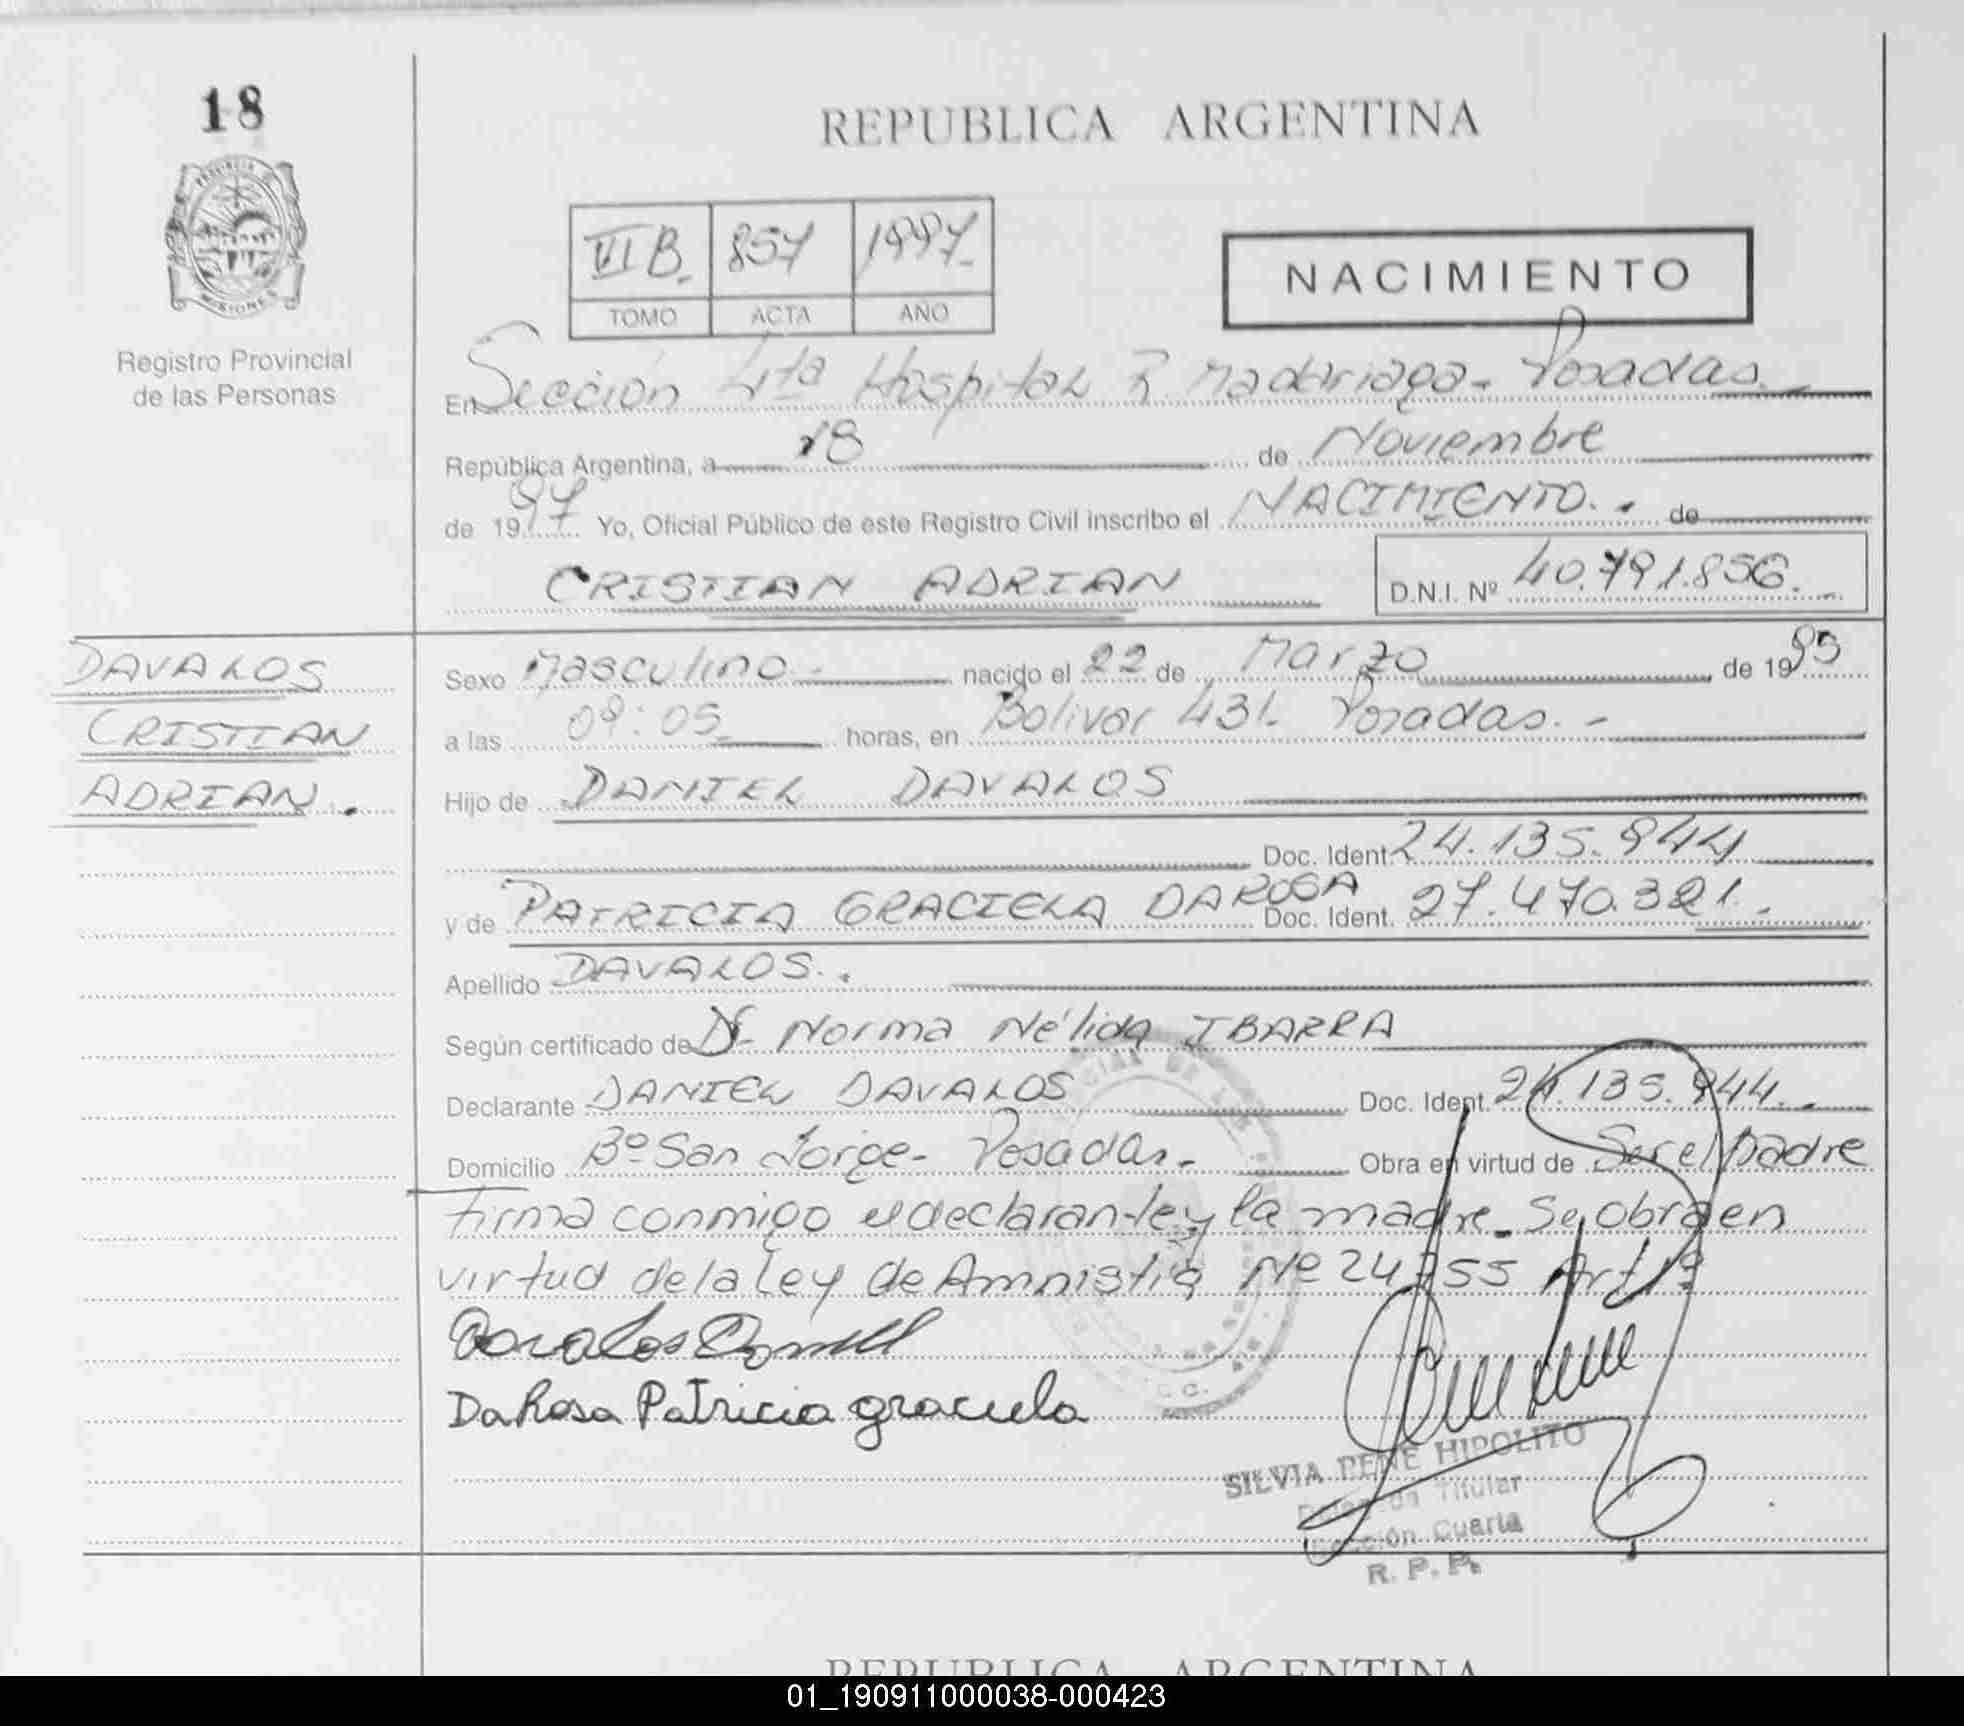 18
REPUBLICA ARGENTINA
VI B. 857 1997
TOMO ACTA AÑO
NACIMIENTO
Registro Provincial
de las Personas
En Sección 4ta Hospital R. Madariaga - Posadas.
República Argentina, a 18 de Noviembre
de 1997 Yo, Oficial Público de este Registro Civil inscribo el NACIMIENTO. de
CRISTIAN ADRIAN D.N.I. Nº 40.791.856.
DAVALOS
CRISTIAN
ADRIAN.
Sexo Masculino nacido el 22 de Marzo de 1995
a las 09:05 horas, en Bolivar 431. Posadas.
Hijo de DANIEL DAVALOS
Doc. Ident. 24.135.944
y de PATRICIA GRACIELA DAROSA Doc. Ident. 27.470.321.
Apellido DAVALOS.
Según certificado de Norma Nélida IBARRA
Declarante DANIEL DAVALOS Doc. Ident. 24.135.944.
Domicilio Bº San Jorge - Posadas. Obra en virtud de Ser el Padre
Firma conmigo el declarante y la madre. Se obra en
virtud de la Ley de Amnistia Nº 24755 Art 1º
Davalos Daniel
DaRosa Patricia graciela
SILVIA RENE HIPOLITO
Titular
Sección Cuarta
R. P. P.
REPUBLICA ARGENTINA
01_190911000038-000423